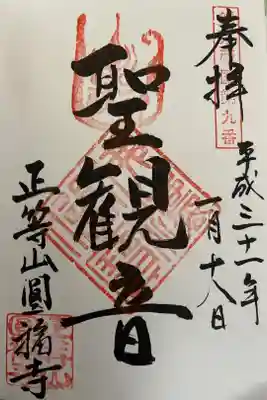 奉拝
平成三十一年
一月十八日
聖観音
正等山圓福寺